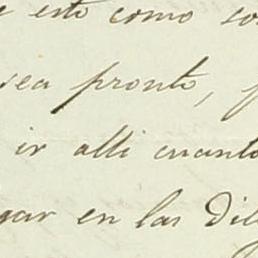 e esto como so
sea pronto, p
ir alli cuanto
gar en las Dil